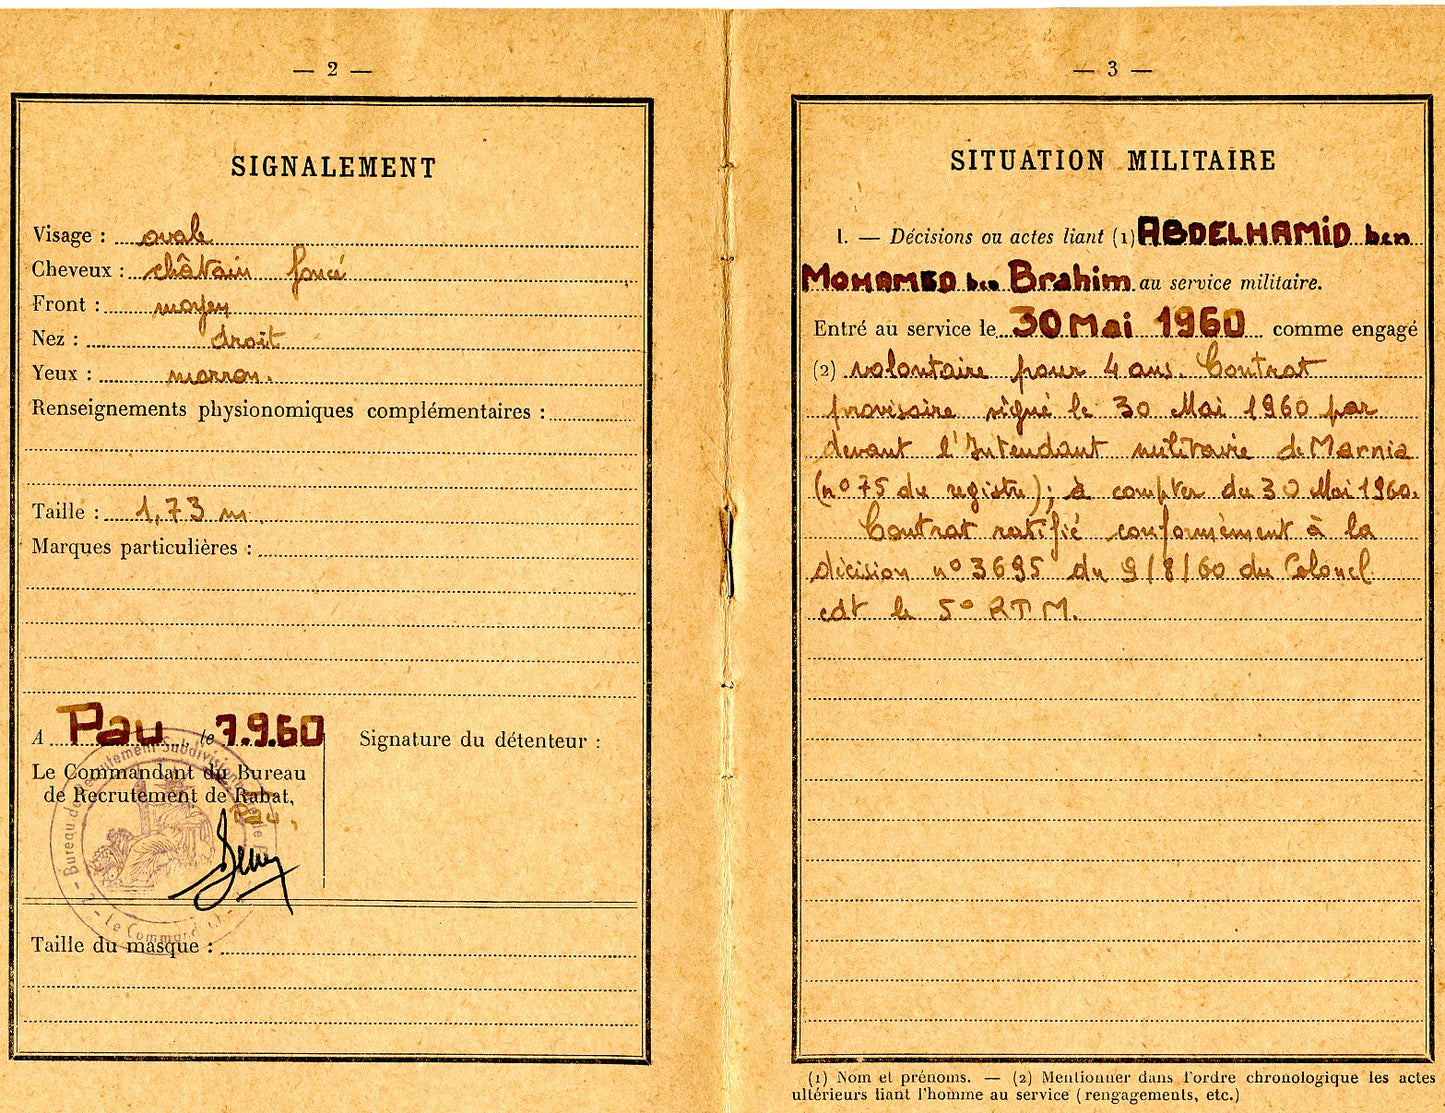 — 2 —
SIGNALEMENT
Visage : ovale
Cheveux : châtain foncé
Front : moyen
Nez : droit
Yeux : marron.
Renseignements physionomiques complémentaires :
Taille : 1,73 m.
Marques particulières :
A Pau le 7.9.60
Signature du détenteur :
Le Commandant du Bureau
de Recrutement de Rabat,
Pau.
Bureau de Recrutement Subdivisionnaire de
- Le Command
Taille du masque :
— 3 —
SITUATION MILITAIRE
I. — Décisions ou actes liant (1) ABDELHAMID ben
MOHAMED ben Brahim au service militaire.
Entré au service le 30 Mai 1960 comme engagé
(2) volontaire pour 4 ans. Contrat
provisoire signé le 30 Mai 1960 par
devant l'Intendant militaire de Marnia
(n° 75 du registre); à compter du 30 Mai 1960.
Contrat ratifié conformément à la
décision n° 3695 du 9/8/60 du Colonel
cdt le 5° RTM.
(1) Nom et prénoms. — (2) Mentionner dans l'ordre chronologique les actes
ultérieurs liant l'homme au service (rengagements, etc.)